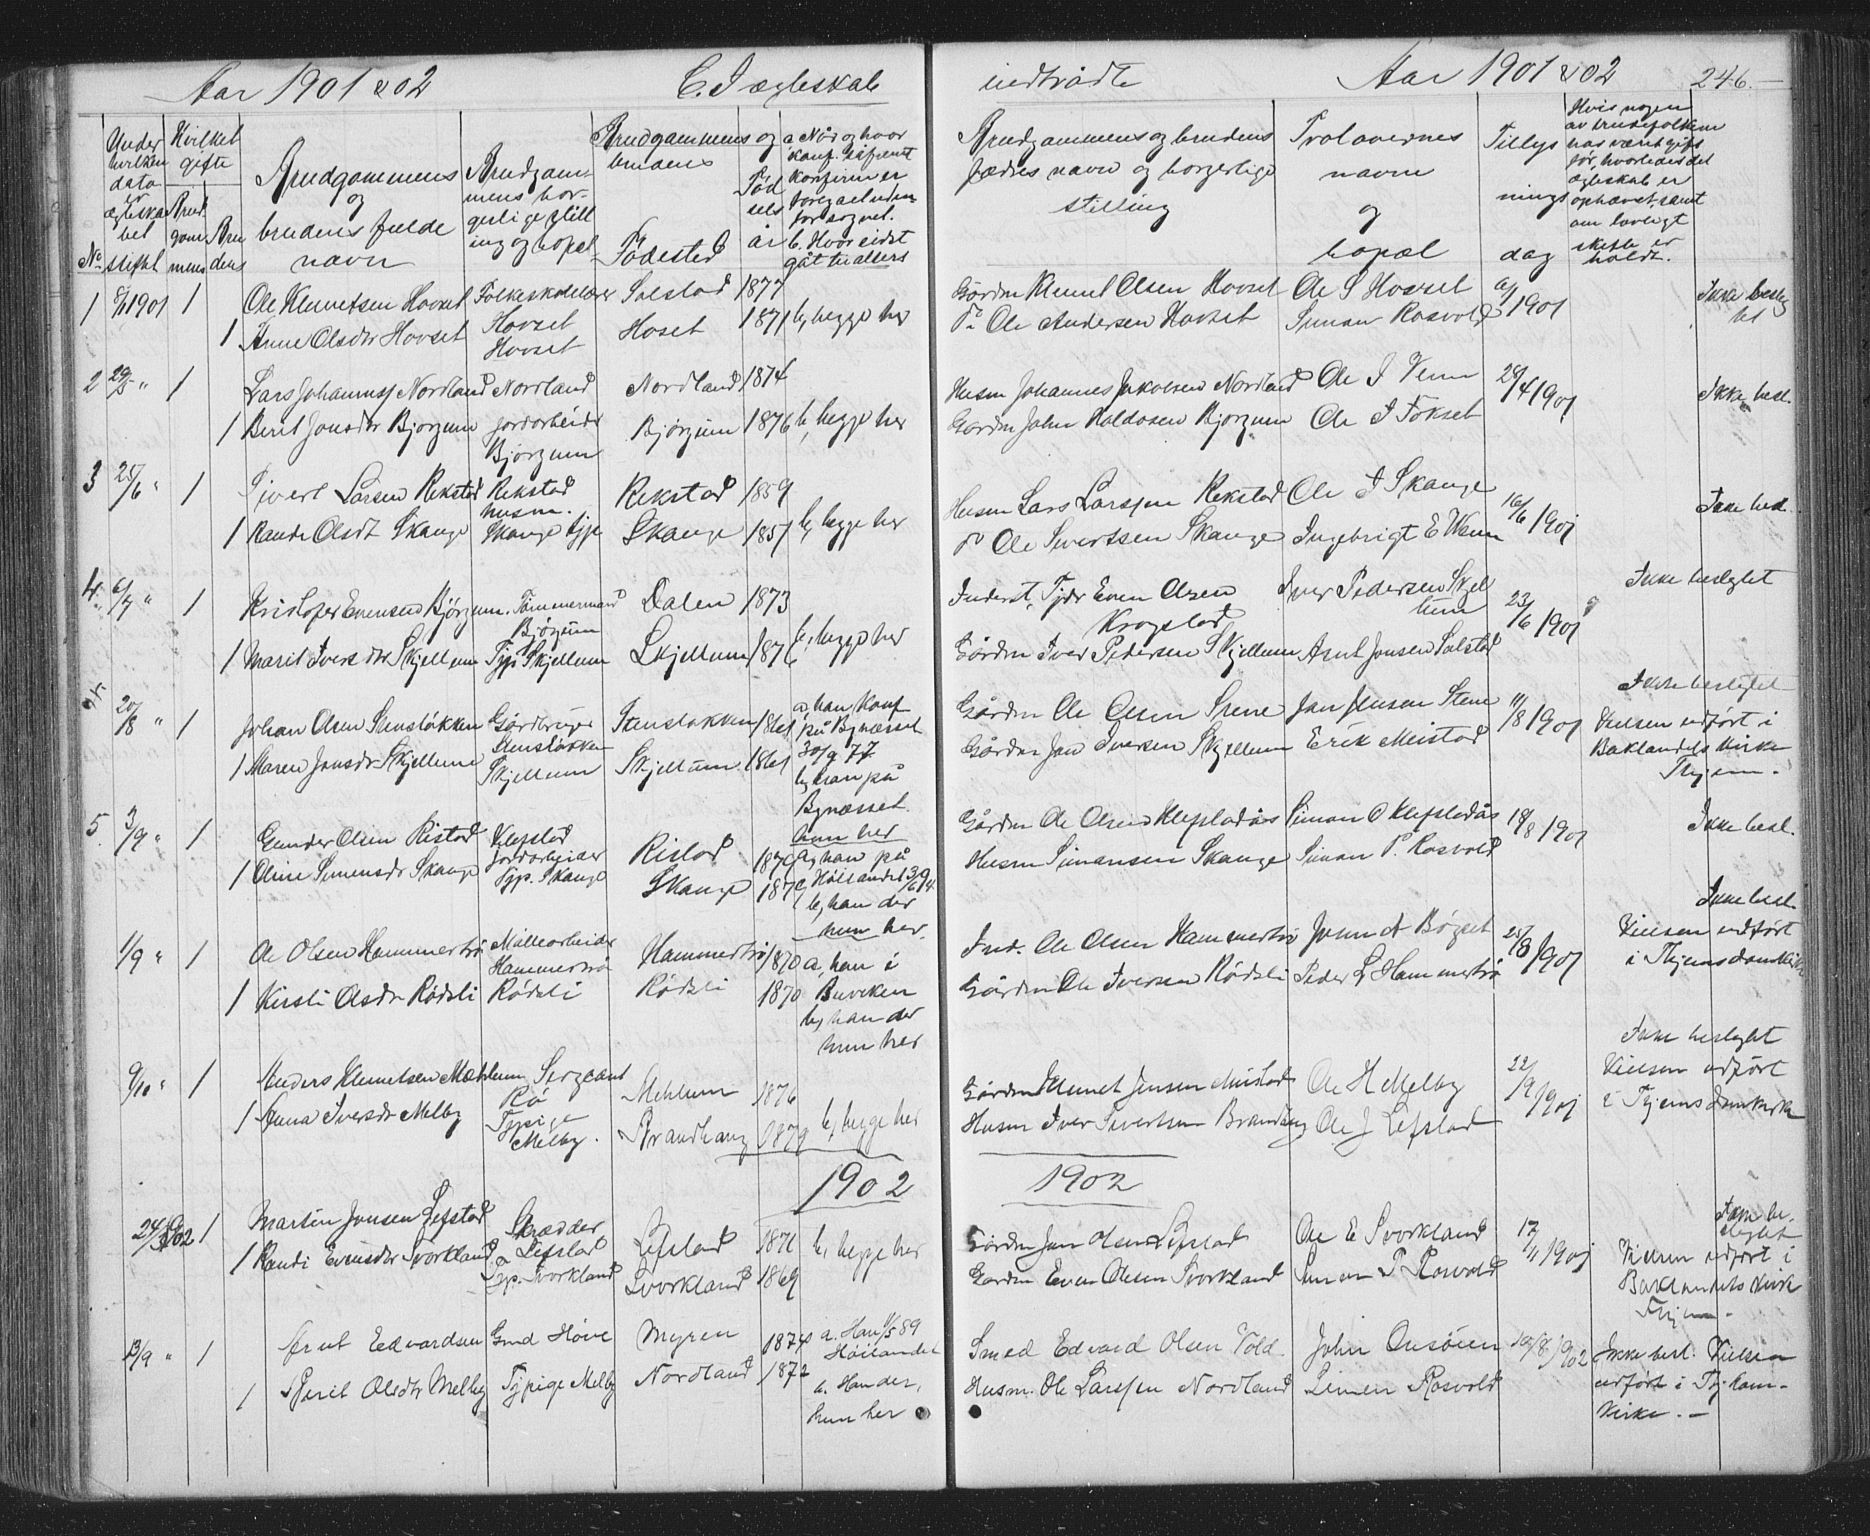 Aar 1901 & 02
C. I ægteskab
indtrådte
Aar 1901 & 02
246.
No
Under hvilken data er ægteskabet stiftet
Hvilket gifte
Brudgommens
Brudens
Brudgommens og brudens fulde navn
Brudgommens borgerlige stilling og bopæl
Brudgommens og brudens
Fødested
Fødselsår
b. Hvor sidst gåt til alters
Brudgommens og brudens fædres navn og borgerlige stilling
Trolovernes navn og bopæl
Tillysningsdag
Hvis nogen av brudefolkene har været gift før, hvorledes det ægteskab er ophævet, samt om lovligt skifte er holdt.
1 1901 1 Ole Klemetsen Hovset Folkeskolelærer Solstad 1877
1 Anne Olsdtr Hovset Hovset Hoset 1871 b, begge her
Hovset
Gårdm Klemet Olsen Hovset Ole S Hovset 1901 Ikke beslg
do Ole Andersen Hovset Simon Rosvold tet
2 29/5 " 1 Lars Johannesj Nordland Nordland Nordland 1874
1 Berit Jonsdtr Bjørgum Jordarbeider Bjørgum 1876 b, begge her
Bjørgum
Husm Johannes Jakobsen Nordland Ole J Venn 28/4 1901 Ikke besl.
Gårdm John Haldosen Bjørgum Ole J Fokset
3 25/6 " 1 Sivert Larsen Rekstad Rekstad Rekstad 1859
husm.
1 Randi Olsdt Skange Skange tjp Skange 1857 b, begge her
Husm Lars Larssen Rekstad Ole J Skange 16/6 1901 Ikke besl.
do Ole Sivertsen Skange Ingebrigt E Wenn
4. 6/7 " 1 Kristofer Evensen Bjørgum. Tømmermand Dalen 1873
Bjørgum
1 Marit Iversdtr Skjellum Tjp Skjellum Skjellum 1876 b, begge her
Inderst, Tjdr Even Olsen Iver Pedersen Skjel 23/6 1901 Ikke beslegtet
Krogstad lum
Gårdm Iver Pedersen Skjellum Arnt Jonsen Solstad
20/8 " 1 Johan Olsen Stensløkken Gårdbruger Stensløkken 1861 a, han konf
Stensløkken på Bynæsset
1 Maren Jonsdtr Skjellum Skjellum Skjellum 1861 30/9 77
b, han på
Bynæsset.
hun her
Gårdm Ole Olsen Stene Jon Jensen Stene 11/8 1901 Ikke beslegtet
Gårdm Jon Iversen Skjellum Erik Meistad Vielsen udført i
Baklandets Kirke
Thjem.
5. 3/9 " 1 Gunder Olsen Ristad Klefstad Ristad 1879 a, han på
Jordarbeider Høilandet 3/6 94.
1 Oline Simensdr Skange Tjp. Skange Skange 187 b, han der
hun her.
Gårdm Ole Olsen Klefstadås Simon O Klefstadås 18/8 1901 Ikke besl.
Husm Simonsen Skange Simon P. Rosvold
1/9 " 1 Ole Olsen Hammertrø Møllearbeider Hammertrø 1870 a, han i
Hammertrø Buviken
1 Kirsti Olsdr Rødsli Rødsli Rødsli 1870 b, han der
hun her
Ind. Ole Olsen Hammertrø John A Bøgset 25/8 1901 Ikke besl.
Gårdm Ole Iversen Rødsli Peder L Hammertrø Vielsen udført
i Thjems domkirke
9/10 " 1 Anders Klemetsen Mæhlum Sergeant Mehlum 1876
Rø
1 Anna Iversdr Melby Tjpige Brandhaug 1879 b, begge her
Melby.
Gårdm Klemet Jensen Meistad Ole H Melby 22/9 1901 Ikke beslegtet
Husm Iver Sivertsen Brandhaug Ole J Lefstad Vielsen udført
i Thjems Domkirke
1902
1902
24/3 1902 1 Martin Jonsen Lefstad Skrædder Lefstad 1871 b, begge her
Lefstad
1 Randi Evensdtr Svorkland Tjp. Svorkland Svorkland 1869
Gårdm Jon Olsen Lefstad Ole E Svorkland 17/11 1901 Ikke be-
slegtet
Gårdm Even Olsen Svorkland Simon P Rosvold Vielsen udført i
Baklandets Kirke
Thjem.
13/9 " 1 Arnt Edvardsen Gmd Høve Myren 1874 a. Han 1/5 89
Høilandet
1 Berit Olsdtr Melby Tjpige Melby Nordland 1872 b. Han der,
hun her
Smed Edvard Olsen Vold John Onsøien 10/8 1902 Ikke besl. Vielsen
Husm. Ole Larssen Nordland Simen Rosvold udført i Thj. dom-
kirke. –